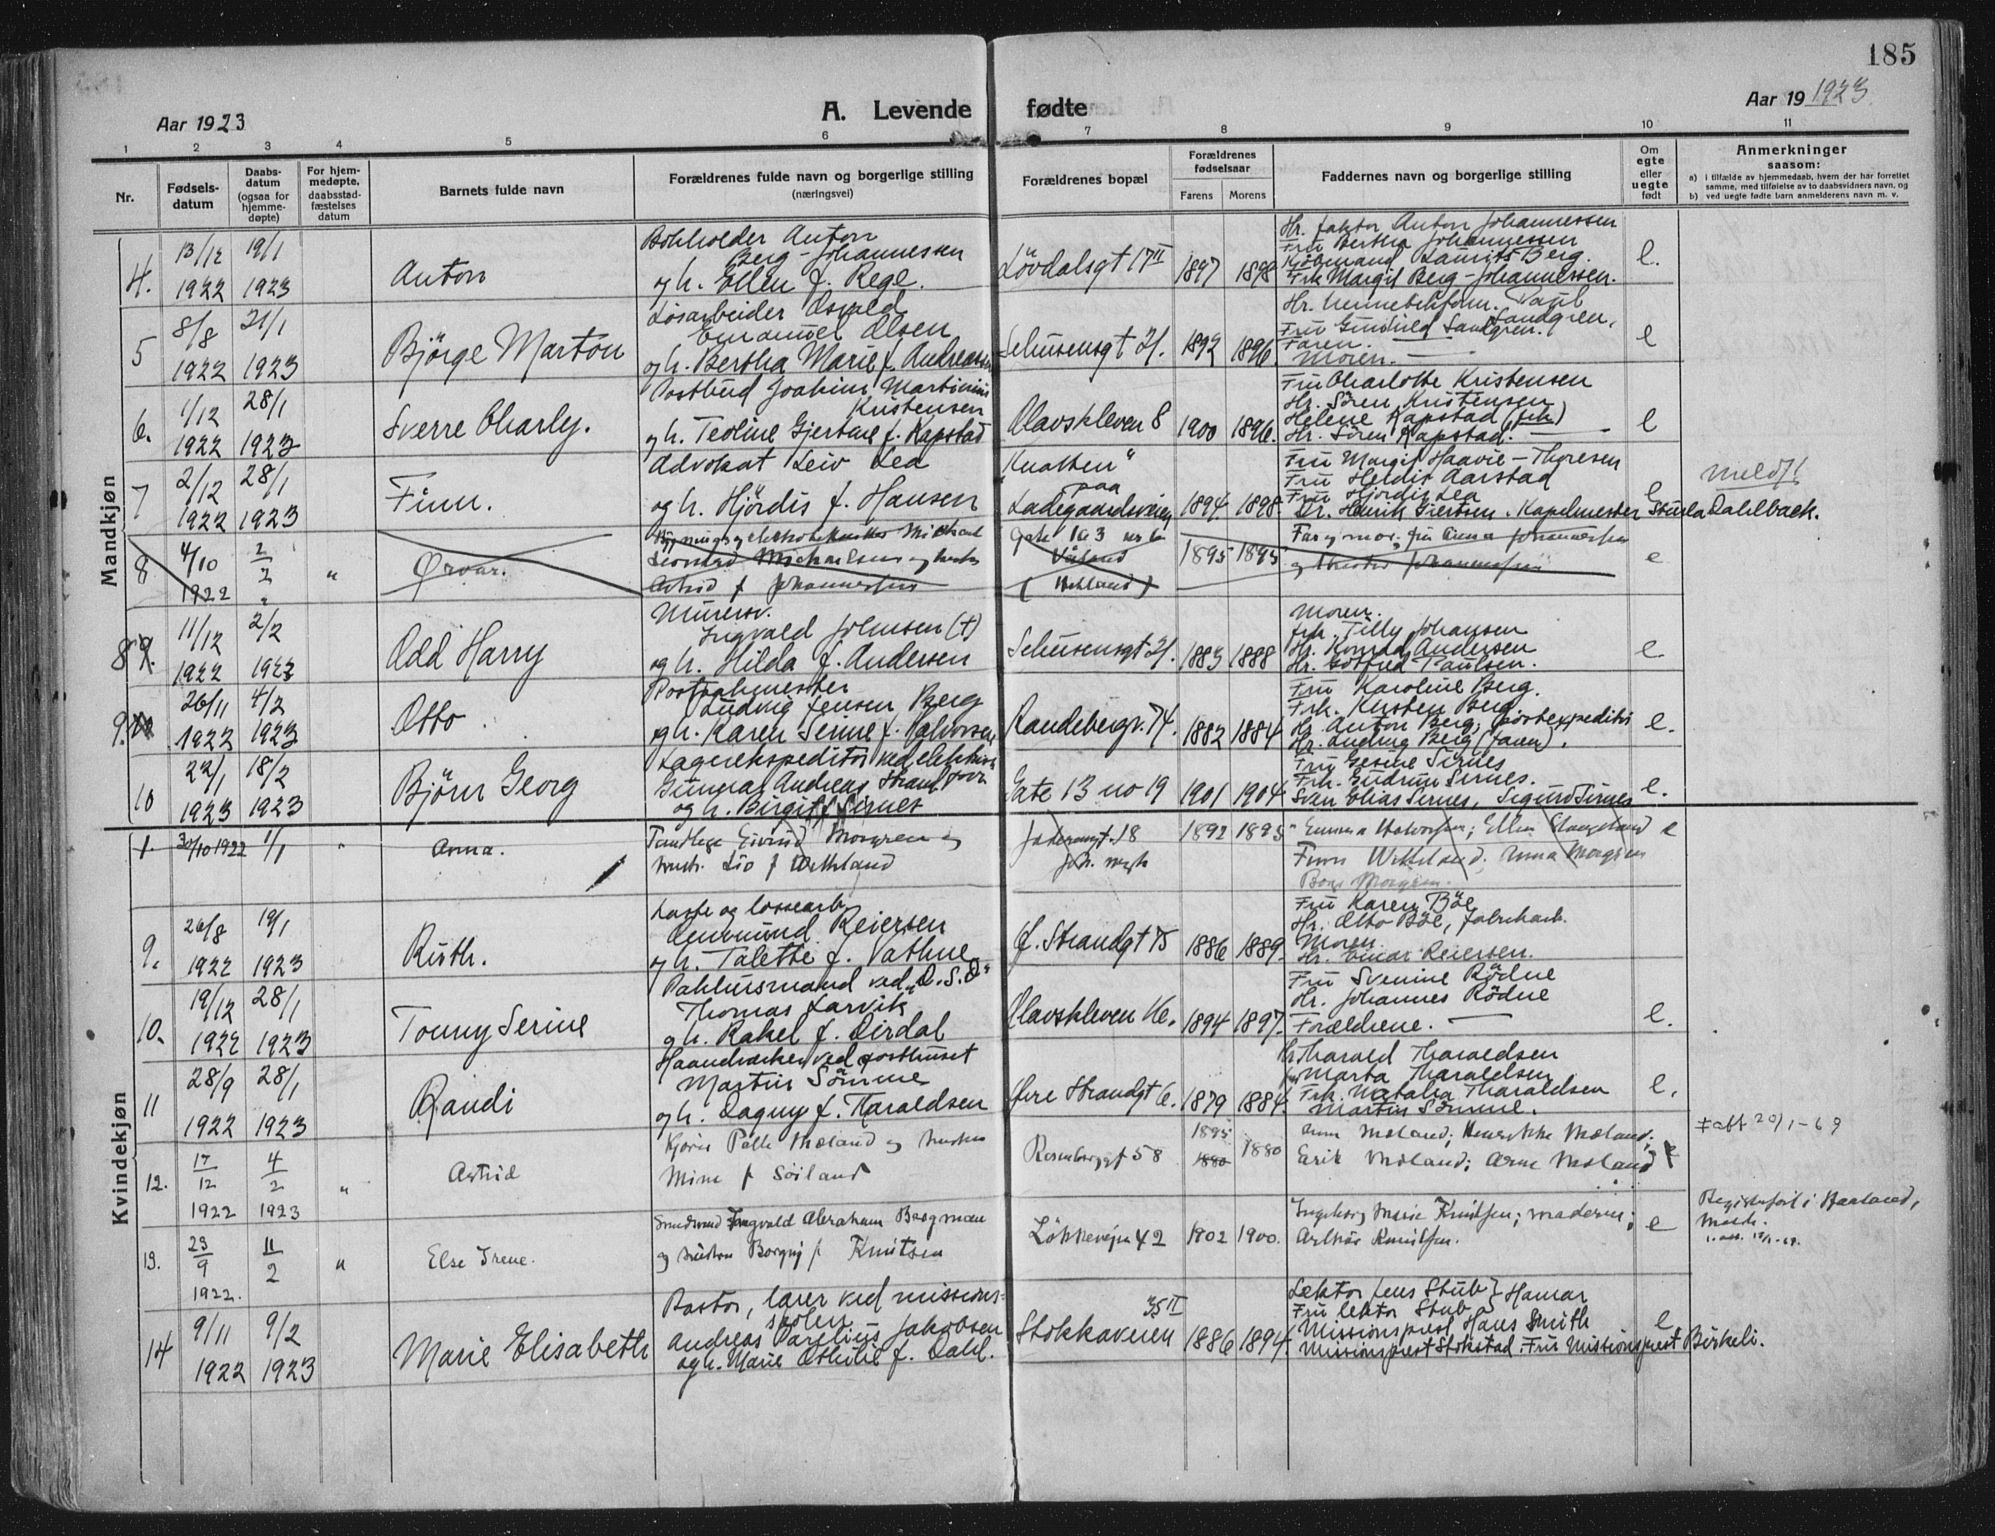 185
Aar 1923
A. Levende fødte
Aar 19 1923
1 2 3 4 5 6 7 8 9 10 11
Nr.
Fødsels-
datum
Daabs-
datum
(ogsaa for
hjemme-
døpte)
For hjem-
medøpte,
daabsstad-
fæstelses
datum
Barnets fulde navn
Forældrenes fulde navn og borgerlige stilling
(næringsvei)
Forældrenes bopæl
Forældrenes
fødselsaar
Farens Morens
Faddernes navn og borgerlige stilling
Om
egte
eller
uegte
født
Anmerkninger
saasom:
a) i tilfælde av hjemmedaab, hvem der har forrettet
samme, med tilføielse av to daabsvidners navn, og
b) ved uegte fødte barn anmelderens navn m. v.
Mandkjøn
4. 13/12 1922 19/1 1923
Anton
Bokholder Anton
Berg-Johannessen
og h. Ellen f. Rege.
Lövdalsgt 17 II
1897 1898
Hr. faktor Anton Johannessen
Fru Bertha Johannessen
Købmand Laurits Berg.
Frk Margit Berg-Johannessen.
e.
5 8/8 1922 21/1 1923
Björge Marton
Løsarbeider Osvald
Emanuel Olsen
og h. Bertha Marie f. Andreassen
1892 1896.
Hr. Paul
Sandgren,
Fru Gunhild Sandgren.
Faren.
Moren.
e
6. 1/12 1922 28/1 1923
Sverre Charly.
Postbud Joakim Martinius
Kristensen
og h. Teoline Gjertine f. Kapstad
Olavskleven 8
1900 1896.
Fru Charlotte Kristensen
Hr. Sören Kristensen
Helene Kapstad (frk)
Hr. Sören Kapstad.
e
7 2/12 1922 28/1 1923
Finn.
Advokat Leiv Lea
og h. Hjördis f. Hansen
"Knatten"
paa
Ladegaardsveien
1894 1898.
Fru Margit Haavie-Thoresen
Fru Heldis Aarstad
Fru Hjördis Lea
Dr. Henrik Gjertsen. Kapelmester Sturla Dahlback.
e
meldt
8 4/10 1922 2/2 "
Ørvar.
Leonard Michaelsen og hustru
Astrid f Johannessen
gate 103
Våland
(Hetland)
1895 1895
Far og mor, fru Anna Johannessen
e
8 9. 11/12 1922 2/2 1923
Odd Harry
Murersv.
Ingvald Johnsen (+)
og h. Hilda f. Andersen
1883 1888
Moren.
frk. Tilly Johansen
Hr. Konrad Andersen
Hr. Gotfred Paulsen.
e.
9. 10 26/11 1922 4/2 1923
Otto.
Postaakmester
Ludvig Jensen Berg
og h. Karen Serine f. Halvorsen
Randebergv. 74.
1882 1884
Fru Karoline Berg.
Frk. Kirsten Berg
Hr. Anton Berg, postexpeditör
Hr. Ludvig Berg (faren).
e.
10 22/1 1923 18/2 1923
Björn Georg
Lagerekspeditör ved
Gunnar Andreas
og h. Birgit f. Sirnes
Gate 13 no 19
1901 1904
Fru Gesine Sirnes
Frk. Gudrun Sirnes.
Sven Elias Sirnes, Sigurd Sirnes
e.
Kvindekjøn
1 30/10 1922 1/1 "
Anna.
Tandlæge Eivind Morgren og
hustr. Liv f Wetteland
18
1892 1895
Emma Halvorsen; Ellen
Finn Wetteland; Anna Morgren
e
9. 26/8 1922 19/1 1923
Ruth.
Laste og lossearb.
Amund Reiersen
og h. Talette f. Vathne
Ø. Strandgt 75
1886 1889.
Fru Karen Böe
Hr. Otto Böe, fabrikarb.
Moren
Hr. Einar Reiersen.
10. 19/12 1922 28/1 1923
Tonny Serine
Pakhusmand ved "D.S.D"
Thomas Larvik
og h. Rakel f. Dirdal
Olavskleven 16.
1894 1897.
Fru Svenine Rödne
Hr. Johannes Rödne
Forældrene.
e.
11 28/9 1922 28/1 1923
Randi
Haandværker ved posthuset
Martin Sömme
og h. Dagny f. Taraldsen
Øvre Strandgt 6.
1879 1884.
Hr Tharald Tharaldsen
Fru Marta Tharaldsen
Frk. Natalia Tharaldsen
Martin Sömme.
e.
12. 17/12 1922 4/2 1923 "
Astrid
Palle Mæland og hustru
Mine f Söiland
58
1895 1880 1880
Mæland; Henrikke Mæland;
Erik Mæland; Arne Mæland
e
‡ aft 20/1-69
13. 23/9 1922. 11/2 "
Else Irene.
Ingvald Abraham Bergman
og hustru Borgny f Knutsen
Lökkeveien 42
1902 1900.
Ingeborg Marie Knutsen; moderen;
Knutsen.
e
14 9/11 1922 9/2 1923
Marie Elisabeth
Pastor, lærer ved missions-
skolen
Andreas Parelius Jakobsen
og h. Marie Othilie f. Dahl.
Stokkaveien 35 II
1886 1894
Lektor Jens Stub } Hamar
Fru lektor Stub
Missionsprest Hans Smith
Missionsprest Stokstad. Fru Missionsprest Birkeli.
e